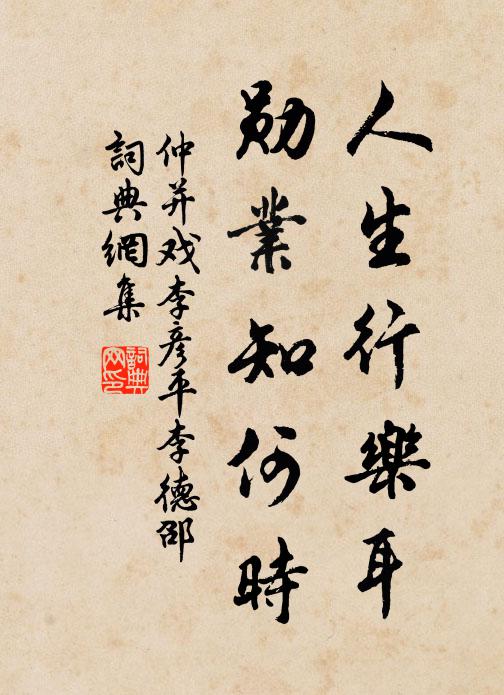 人生行樂耳
勛業知何時
仲并戏李彦平李德邵
詞典網集
詞典网印